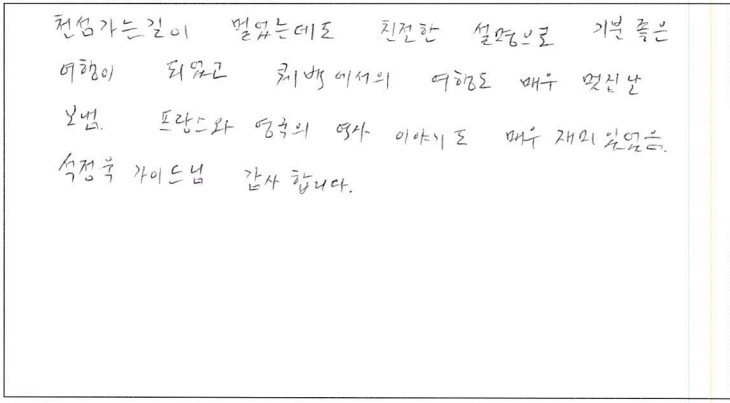 천섬가는길이 멀었는데도 친절한 설명으로 기분 좋은
여행이 되었고 퀘백에서의 여행도 매우 멋진 날
보냄. 프랑스와 영국의 역사 이야기도 매우 재미있었음.
석정욱 가이드님 감사합니다.